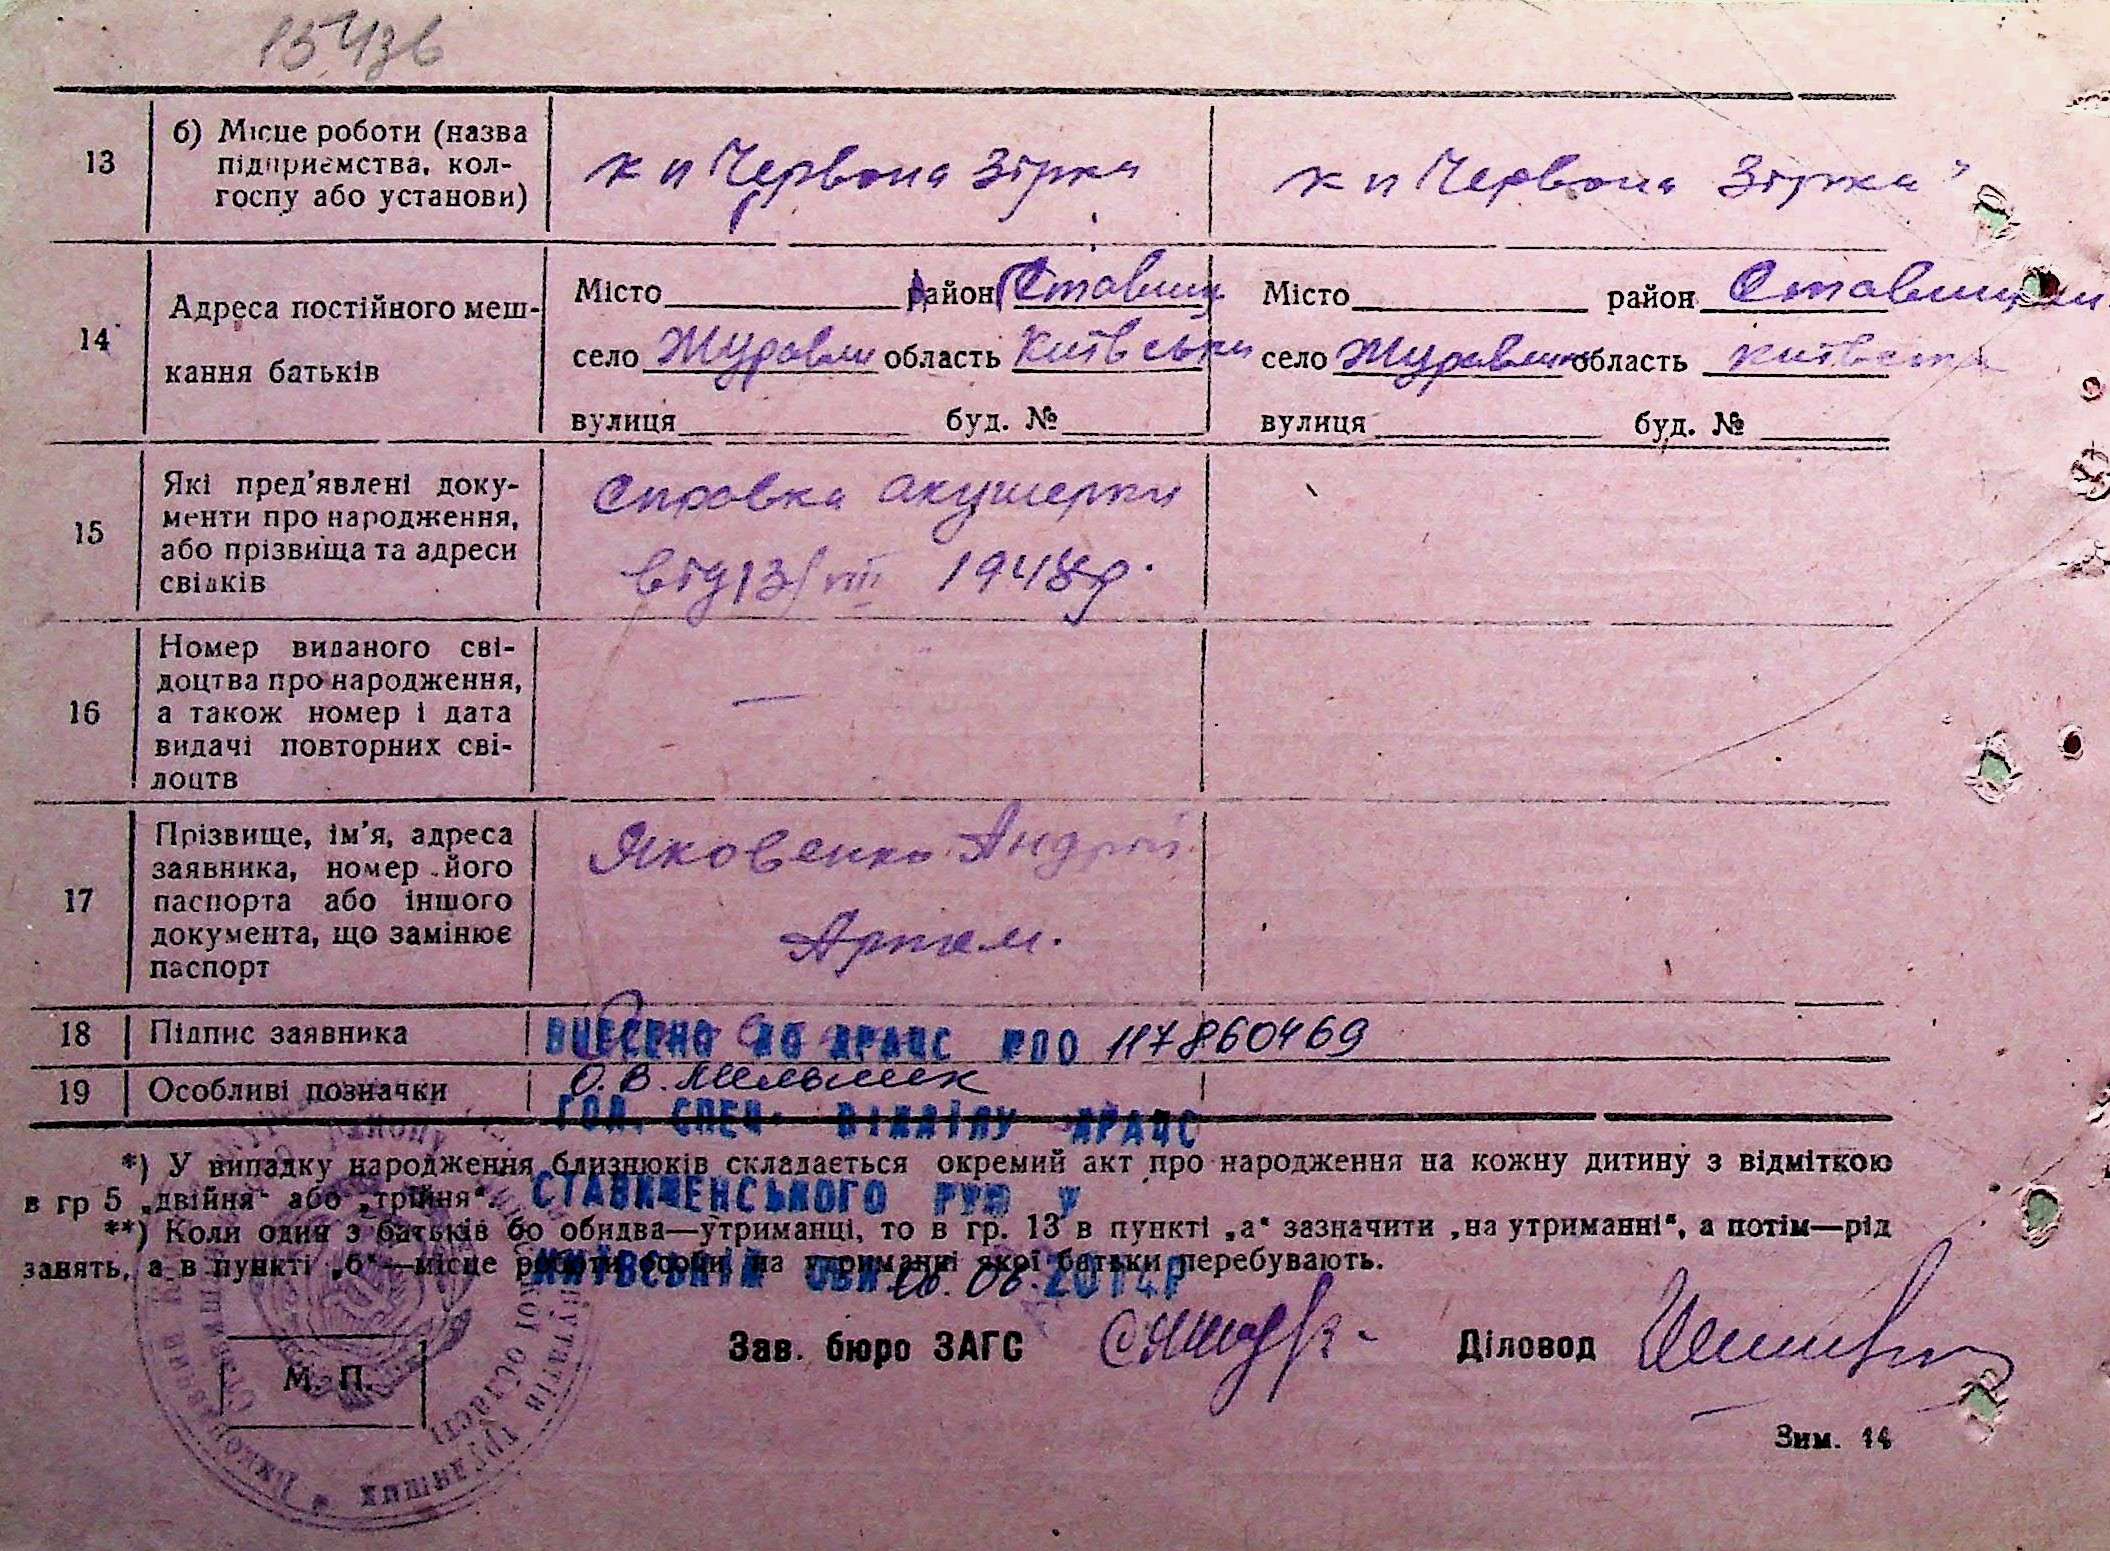 154зв
13
б) Місце роботи (назва
підприємства, кол-
госпу або установи)
к п Червона Зірка
к п Червона Зірка"
14
Адреса постійного меш-
кання батьків
Місто район Ставищ
село Журавли область Київська
вулиця буд. №
Місто район Ставищан
село Журавли область Київська
вулиця буд. №
15
Які пред'явлені доку-
менти про народження,
або прізвища та адреси
свідків
Справка акушерки
від 13/VIII 1948р.
16
Номер виданого сві-
доцтва про народження,
а також номер і дата
видачі повторних сві-
доцтв
—
17
Прізвище, ім'я, адреса
заявника, номер його
паспорта або іншого
документа, що замінює
паспорт
Яковенко Андрій
Артем.
18 Підпис заявника
ВНЕСЕНО ДО ДРАЦС РПО 117860469
19 Особливі позначки
О.В. Мельник
ГОЛ. СПЕЦ. ВІДДІЛУ ДРАЦС
*) У випадку народження близнюків складається окремий акт про народження на кожну дитину з відміткою
в гр 5 „двійня“ або „трійня“.
СТАВИЩЕНСЬКОГО РУЮ У
**) Коли один з батьків бо обидва—утриманці, то в гр. 13 в пункті „а“ зазначити „на утриманні“, а потім—рід
занять, а в пункті „б“—місце роботи особи, на утриманні якої батьки перебувають.
КИЇВСЬКІЙ ОБЛ 16.06.2014Р
Зав. бюро ЗАГС
Діловод
М. П.
Зим. 14